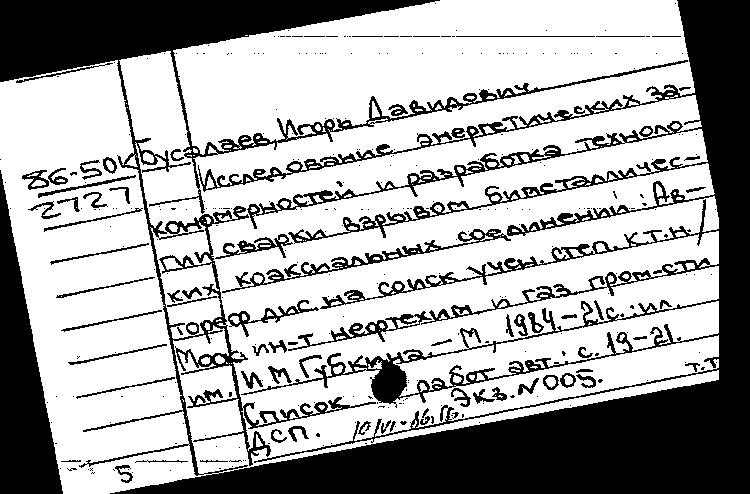 86-50К
2727
Бусалаев, Игорь Давидович.
Исследование энергетических за-
кономерностей и разработка техноло-
гии сварки взрывом биметалличес-
ких коаксиальных соединений: Ав-
тореф дис. на соиск учен. степ. к.т.н. /
Моск. ин-т нефтехим и газ. пром-сти
им. И.М. Губкина. – М., 1984. – 21с. : ил.
Список работ авт.: с. 19-21.
ДСП. Экз. N 005.
т.т
5